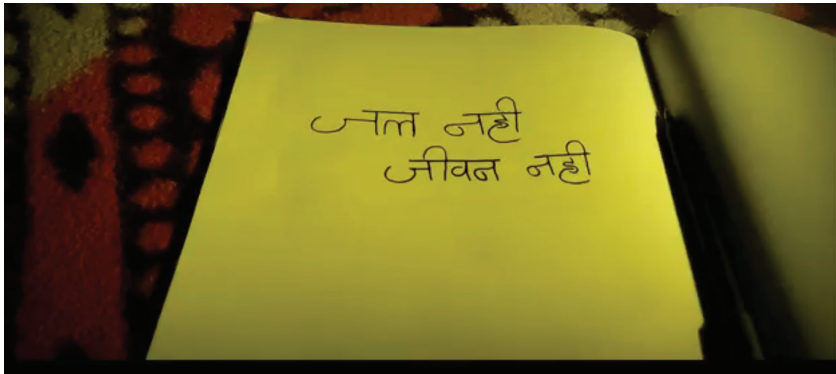 जल नही
जीवन नही